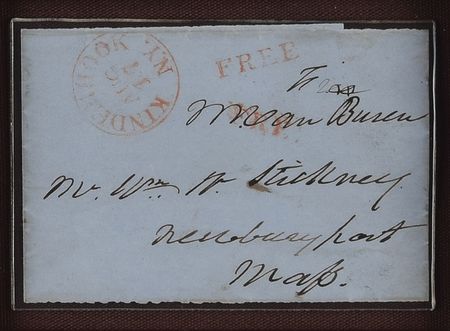 KINDERHOOK N.Y.
AUG
17
FREE
FREE
Free
M. Van Buren
Mr. Wm. W. Stickney
Newburyport
Mass.